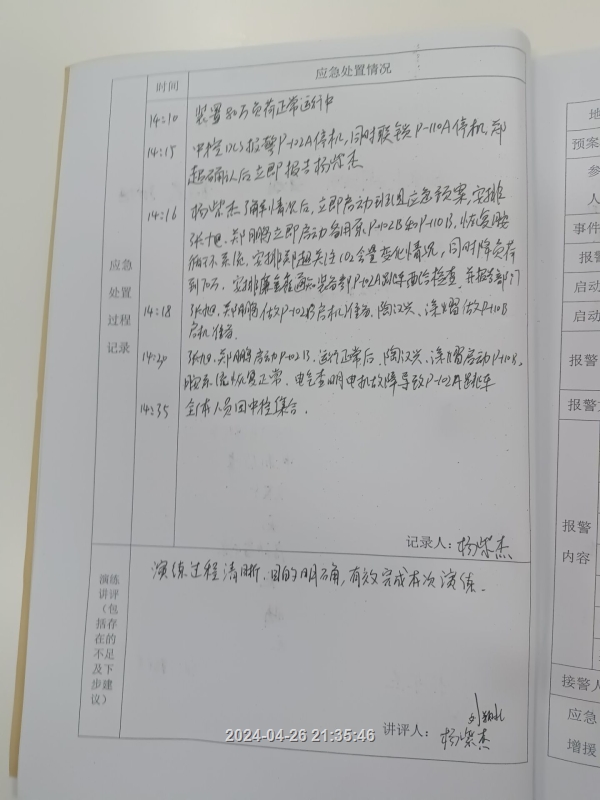 时间
应急处置情况
14:10
装置80万负荷正常运行中
14:15
中控DCS报警P-102A停机,同时联锁P-110A停机,郑
超确认后立即报告杨紫杰
14:16
杨紫杰了解情况后,立即启动班组应急预案,安排
张旭、郑鹏立即启动备用泵P-102B和P-110B,恢复胺
循环系统。安排郑超关注CO2含量变化情况,同时降负荷
到70万。安排通知装备部P-102A跳车配合检查,并报告部门
14:18
张旭、郑鹏做P-102B启机准备。陶汉兴、做P-110B
启机准备
14:20
张旭、郑鹏启动P-102B,运行正常后,陶汉兴、启动P-110B,
胺系统恢复正常。电气查明电机故障导致P-102A跳车
14:35
全体人员回中控集合.
应急
处置
过程
记录
记录人:杨紫杰
演练
讲评
(包
括存
在的
不足
及下
步建
议)
演练过程清晰,目的明确,有效完成本次演练.
讲评人:杨紫杰
2024-04-26 21:35:46
地
预案
参
人
事件
报警
启动
启动
报警
报警方
报警
内容
接警人
应急
增援